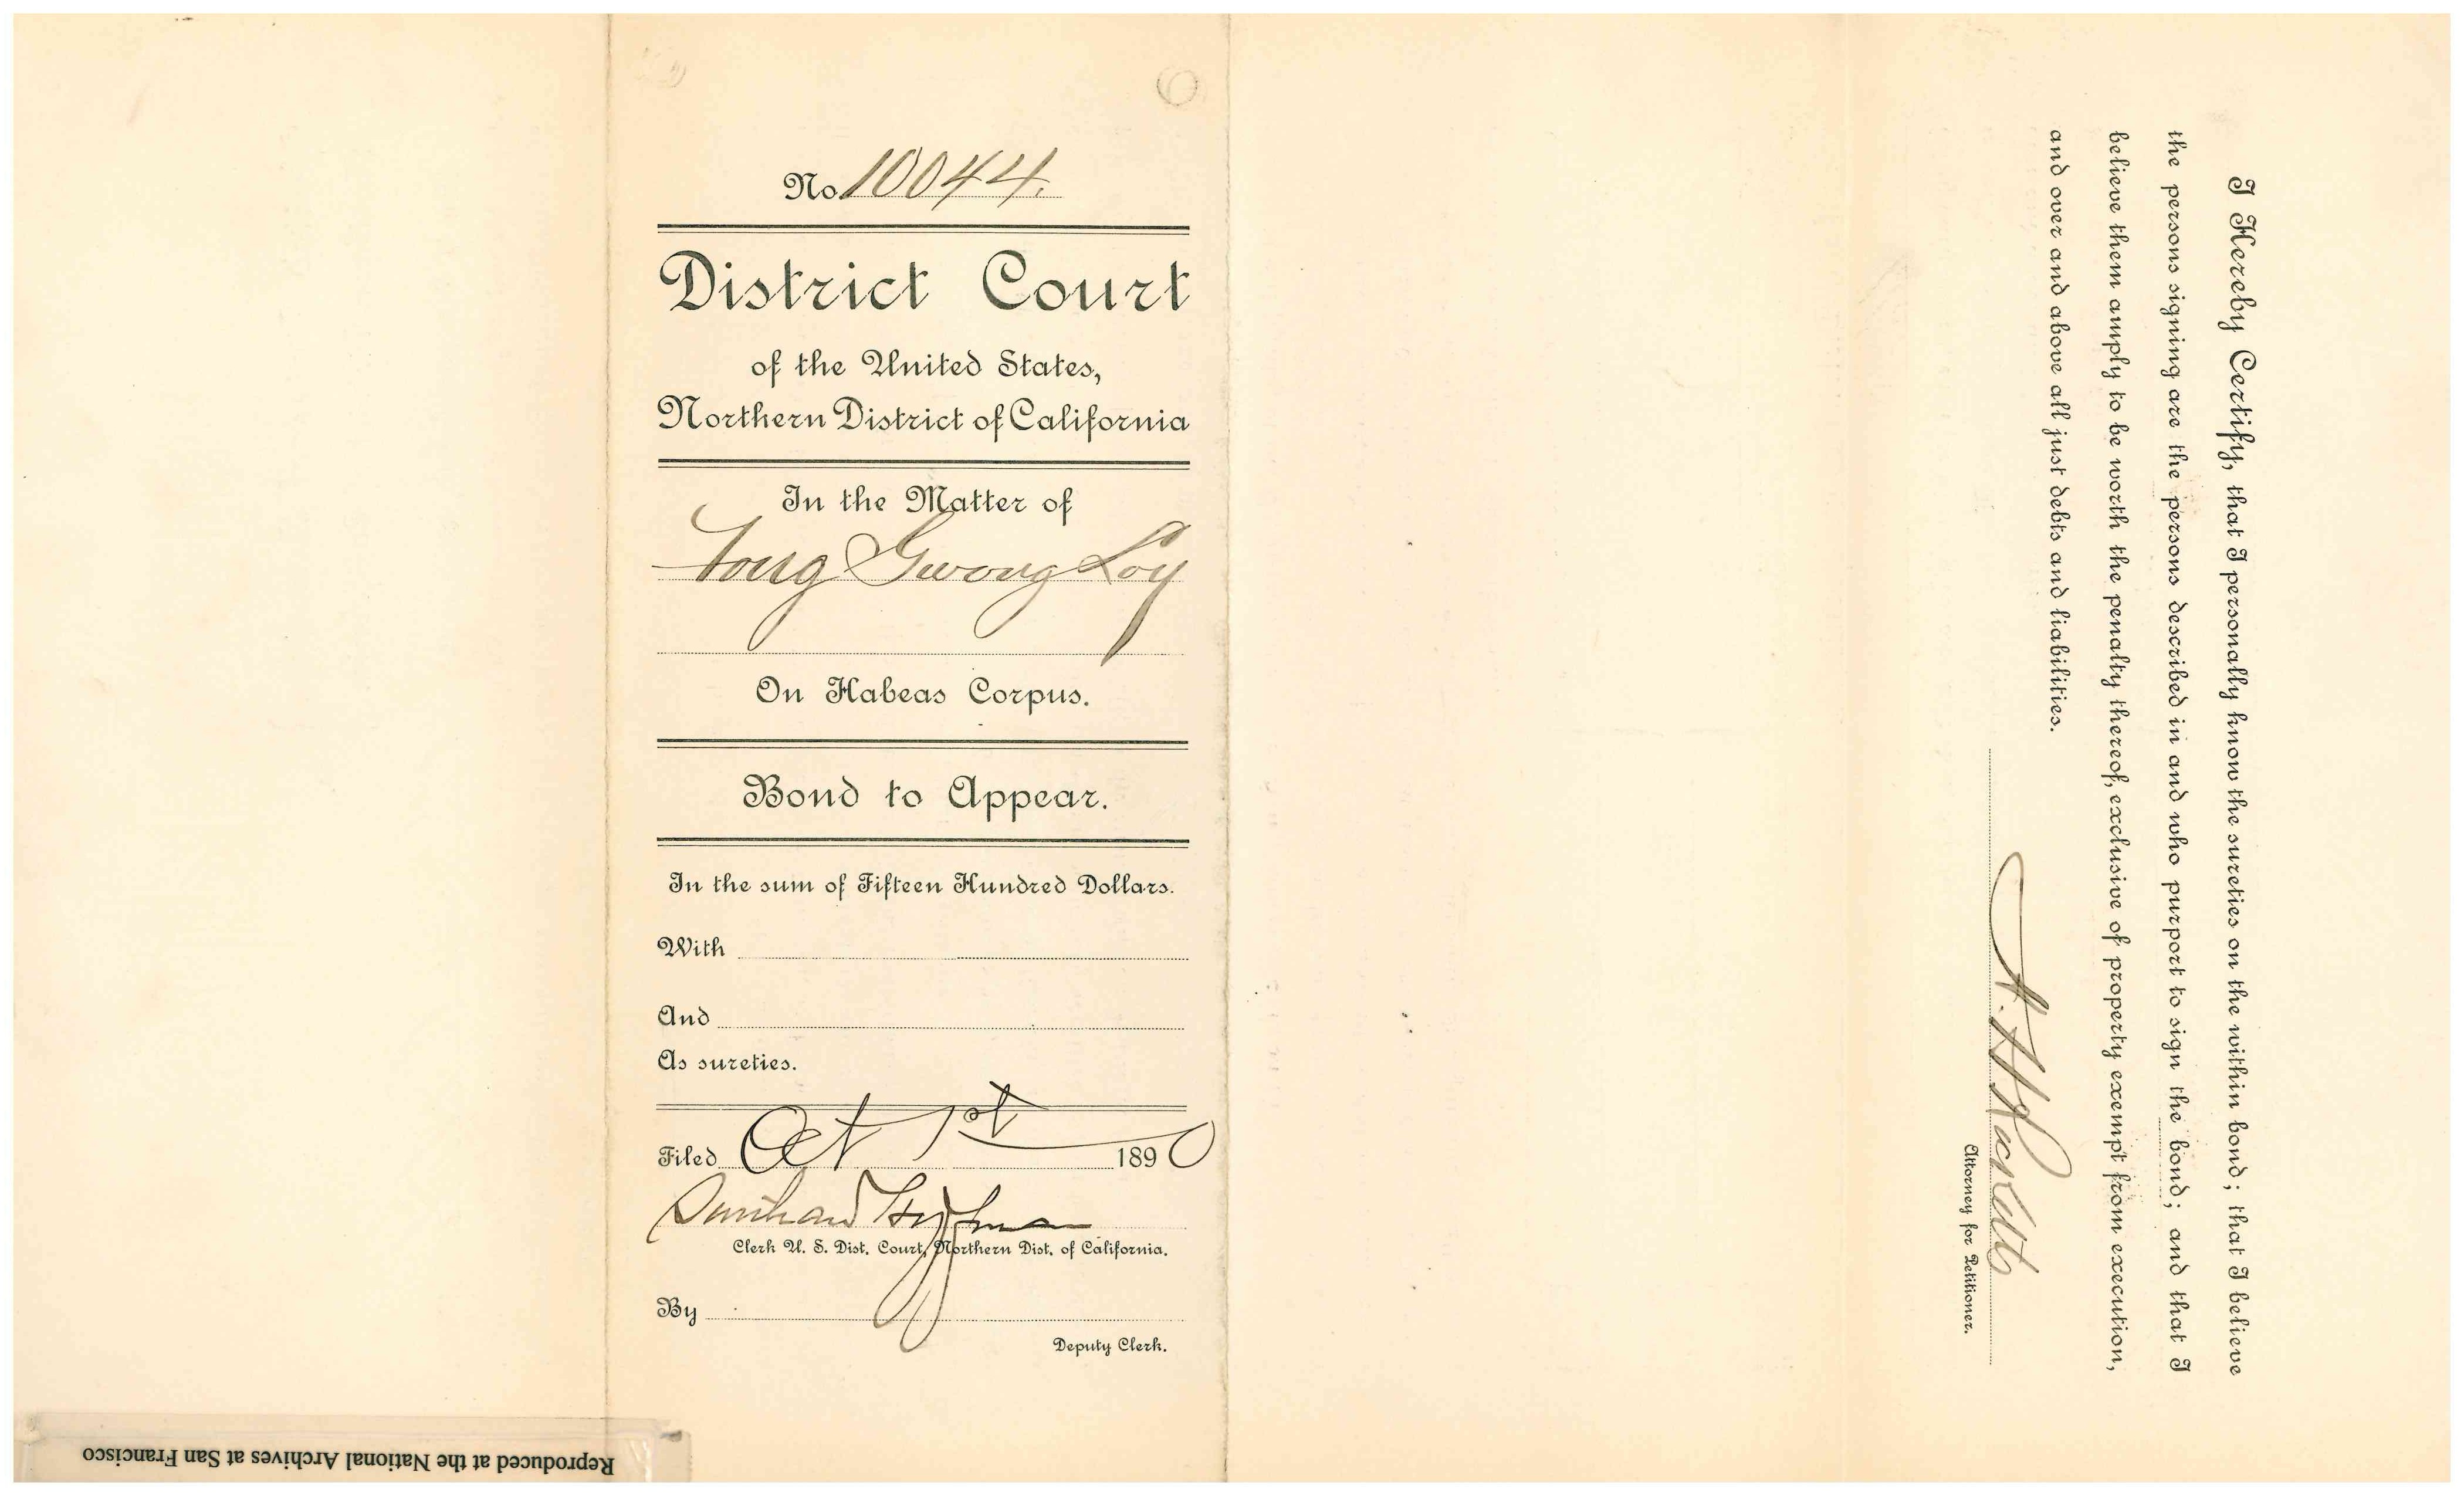 No. 10044.
District Court
of the United States,
Northern District of California
In the Matter of
Fong Gwong Loy
On Habeas Corpus.
Bond to Appear.
In the sum of Fifteen Hundred Dollars.
With
And
As sureties.
Filed Oct 1st 1890
Hoffman
Clerk U. S. Dist. Court, Northern Dist. of California.
By
Deputy Clerk.
I Hereby Certify, that I personally know the sureties on the within bond; that I believe
the persons signing are the persons described in and who purport to sign the bond; and that I
believe them amply to be worth the penalty thereof, exclusive of property exempt from execution,
and over and above all just debts and liabilities.
Attorney for Petitioner.
Reproduced at the National Archives at San Francisco